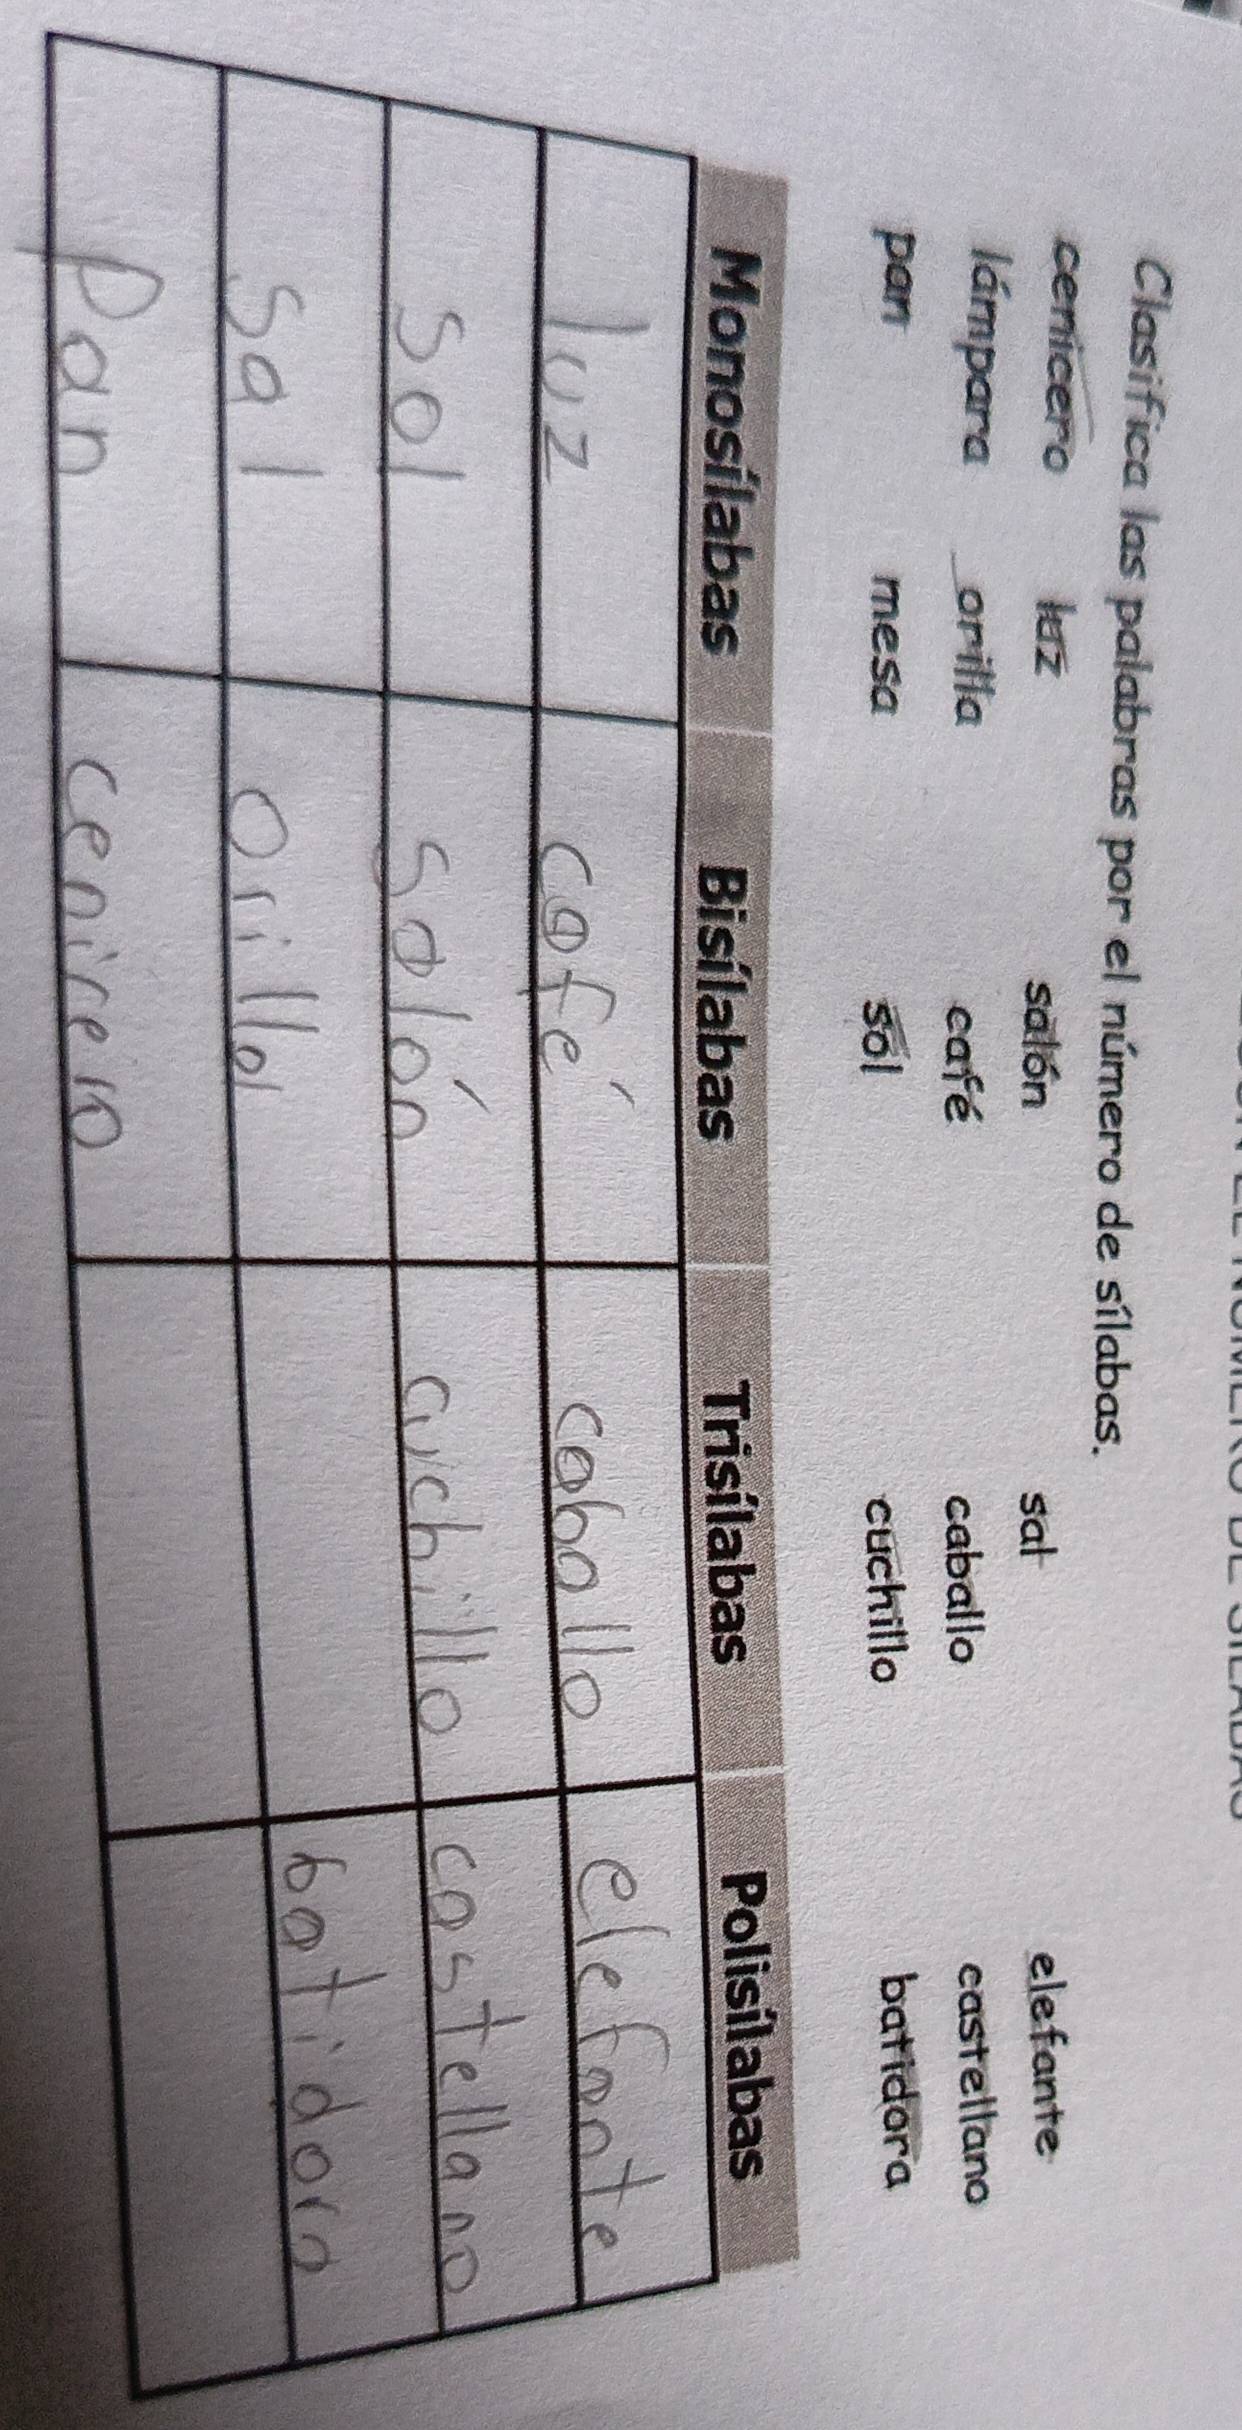 Clasifica las palabras por el número de sílabas.
cenicero luz salón sal elefante
lámpara orilla café caballo castellano
pan mesa sol cuchillo batidora
Monosílabas Bisílabas Trisílabas Polisílabas
luz café caballo elefante
sol salón cuchillo castellano
sal orilla batidora
Pan cenicero